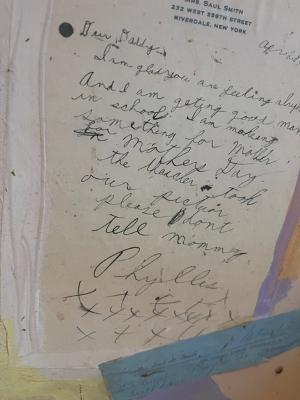 MRS. SAUL SMITH
232 WEST 239TH STREET
RIVERDALE, NEW YORK
Dear Daddy
I am glad you are feeling
And I am getting good
in school. I am making
something for Mother
for Mothers Day
the teacher took
our pictur
please dont
tell mommy
Phyllis
x x x x
x x x x x x
x x x x